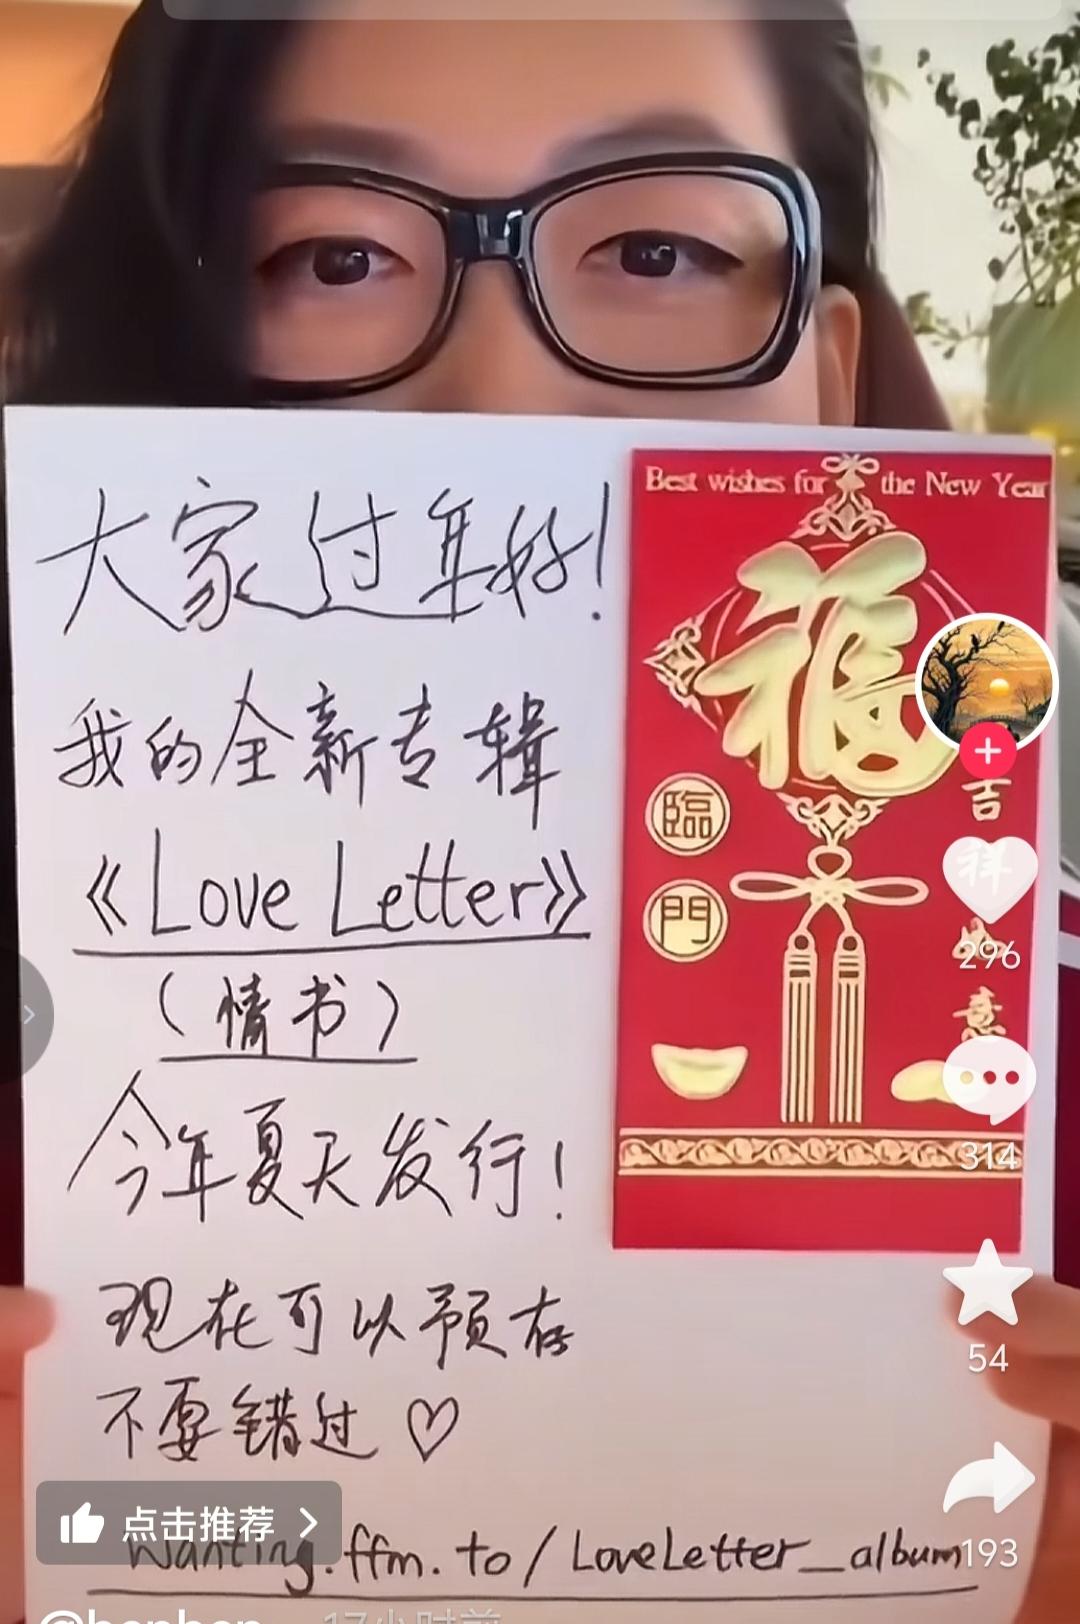 大家过年好!
我的全新专辑
《Love Letter》
(情书)
今年夏天发行!
现在可以预存
不要错过♡
wanting.ffm.to/LoveLetter_album
Best wishes for the New Year
福
臨
門
吉
祥
意
296
314
54
193
点击推荐